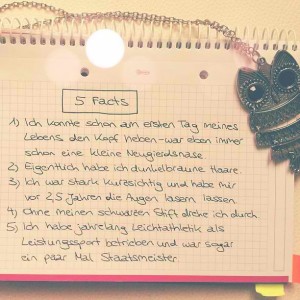 5 Facts
1) Ich konnte schon am ersten Tag meines
Lebens den Kopf heben - war eben immer
schon eine kleine Neugierdsnase.
2) Eigentlich habe ich dunkelbraune Haare.
3) Ich war stark kurzsichtig und habe mir
vor 2,5 Jahren die Augen lasern lassen.
4) Ohne meinen schwarzen Stift drehe ich durch.
5) Ich habe jahrelang Leichtathletik als
Leistungssport betrieben und war sogar
ein paar Mal Staatsmeister.